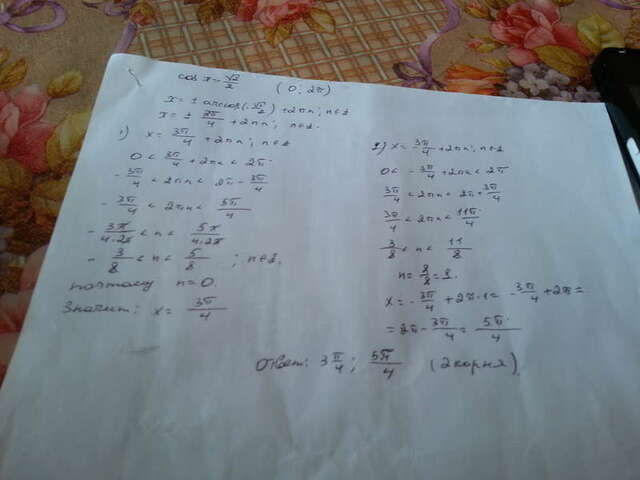 cos x = √2/2 (0; 2π)
x = ± arccos(-√2/2) + 2πn; n∈Z
x = ± 3π/4 + 2πn; n∈Z.
1) x = 3π/4 + 2πn; n∈Z
0 < 3π/4 + 2πn < 2π
-3π/4 < 2πn < 2π - 3π/4
-3π/4 < 2πn < 5π/4
-3π/4·2π < n < 5π/4·2π
-3/8 < n < 5/8; n∈Z.
поэтому n = 0.
Значит: x = 3π/4
2) x = -3π/4 + 2πn; n∈Z
0 < -3π/4 + 2πn < 2π
3π/4 < 2πn < 2π + 3π/4
3π/4 < 2πn < 11π/4
3/8 < n < 11/8
n = 8/8 = 1.
x = -3π/4 + 2π·1 = -3π/4 + 2π =
= 2π - 3π/4 = 5π/4
Ответ: 3π/4; 5π/4 (2 корня).